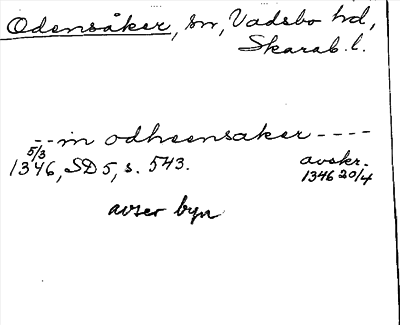 Odensåker, sn, Vadsbo hd,
Skarab. l.
--in odhsensaker----
5/3
1346, SD 5, s. 543.
avskr.
1346 20/4
avser byn